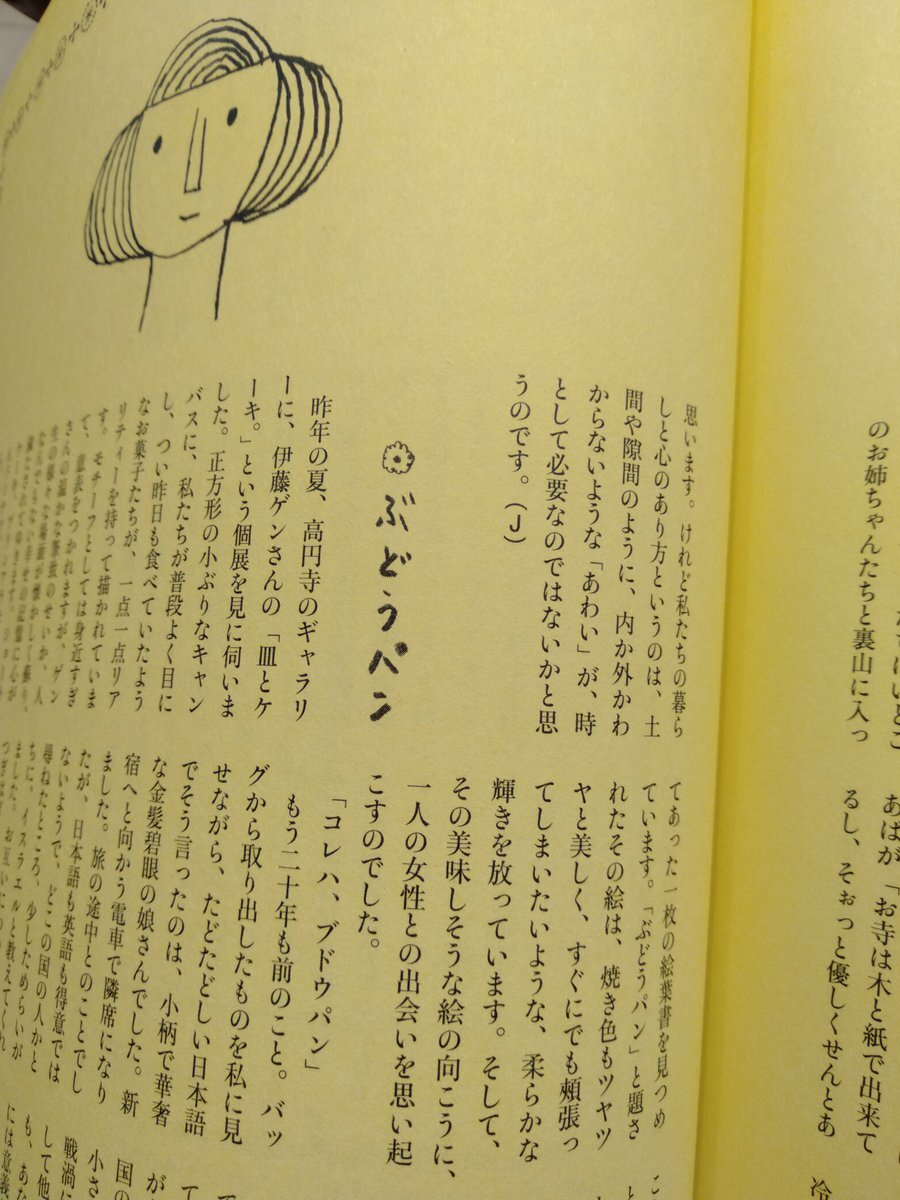 のお姉ちゃんたちと裏山に入っ
あばが「お寺は木と紙で出来て
るし、そぉっと優しくせんとあ
冷
思います。けれど私たちの暮ら
しと心のあり方というのは、土
間や隙間のように、内か外かわ
からないような「あわい」が、時
として必要なのではないかと思
うのです。(J)
ぶどうパン
昨年の夏、高円寺のギャラリ
ーに、伊藤ゲンさんの「皿とケ
ーキ。」という個展を見に伺いま
した。正方形の小ぶりなキャン
バスに、私たちが普段よく目に
し、つい昨日も食べていたよう
なお菓子たちが、一点一点リア
リティーを持って描かれていま
す。モチーフとしては身近すぎ
て、意表をつかれますが、ゲン
さんの温かな筆致のせいか、人
てあった一枚の絵葉書を見つめ
ています。「ぶどうパン」と題さ
れたその絵は、焼き色もツヤツ
ヤと美しく、すぐにでも頰張っ
てしまいたいような、柔らかな
輝きを放っています。そして、
その美味しそうな絵の向こうに、
一人の女性との出会いを思い起
こすのでした。
「コレハ、ブドウパン」
もう二十年も前のこと。バッ
グから取り出したものを私に見
せながら、たどたどしい日本語
でそう言ったのは、小柄で華奢
な金髪碧眼の娘さんでした。新
宿へと向かう電車で隣席になり
ました。旅の途中とのことでし
たが、日本語も英語も得意では
ないようで、どこの国の人かと
尋ねたところ、少しためらいが
ちに、イスラエルと教えてくれ
ました。お互いに
小さ
国の
戦渦に
して他
も、あな
には意義